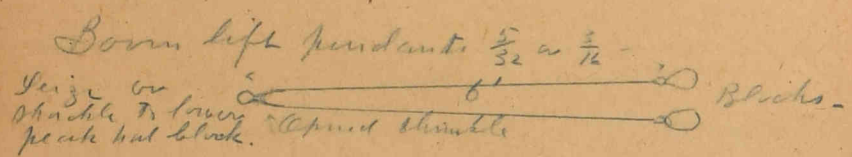 Boom lift pendants 5/32 or 3/16 -
Seize or
shackle to lower
peak hal block.
6'
Opened thimble
Blocks -